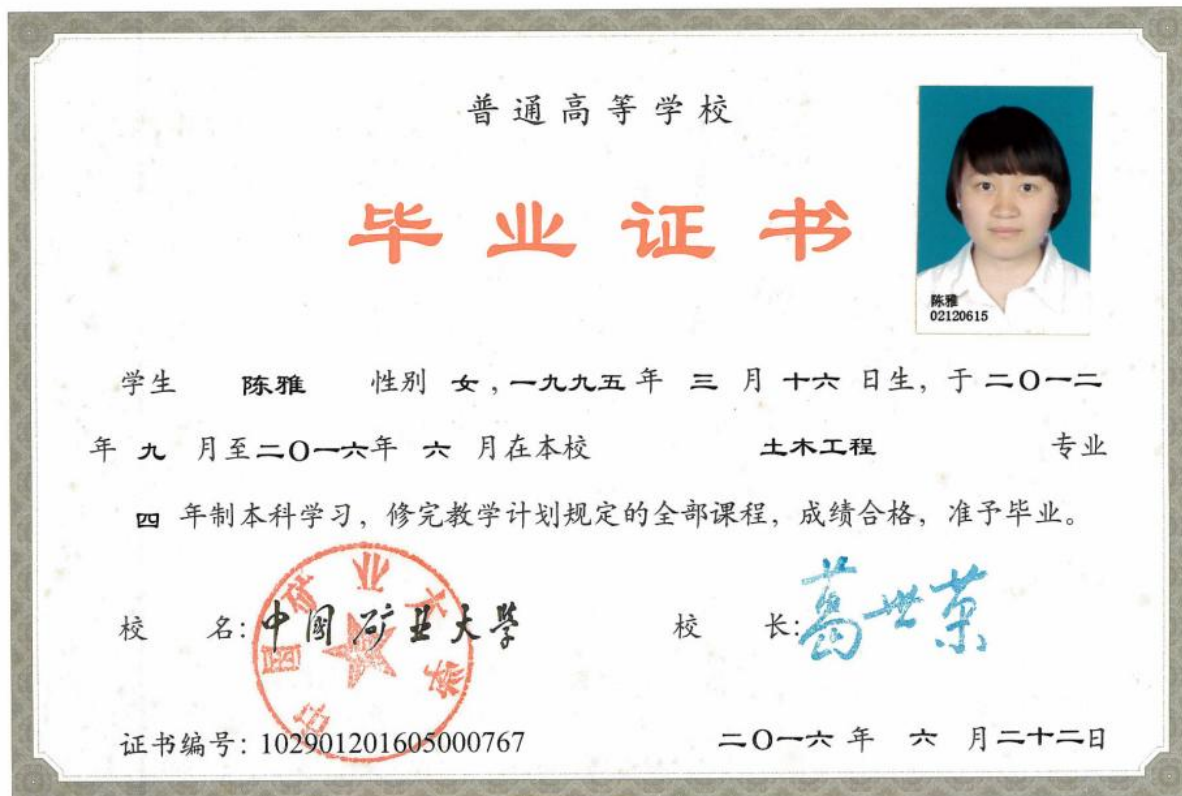 普通高等学校
毕业证书
陈雅
02120615
学生 陈雅 性别 女，一九九五年 三 月 十六 日生，于二〇一二
年 九 月至二〇一六年 六 月在本校 土木工程 专业
四 年制本科学习，修完教学计划规定的全部课程，成绩合格，准予毕业。
校 名：中國矿业大学
中国矿业大学
校 长：葛世荣
证书编号：102901201605000767
二〇一六年 六 月二十二日